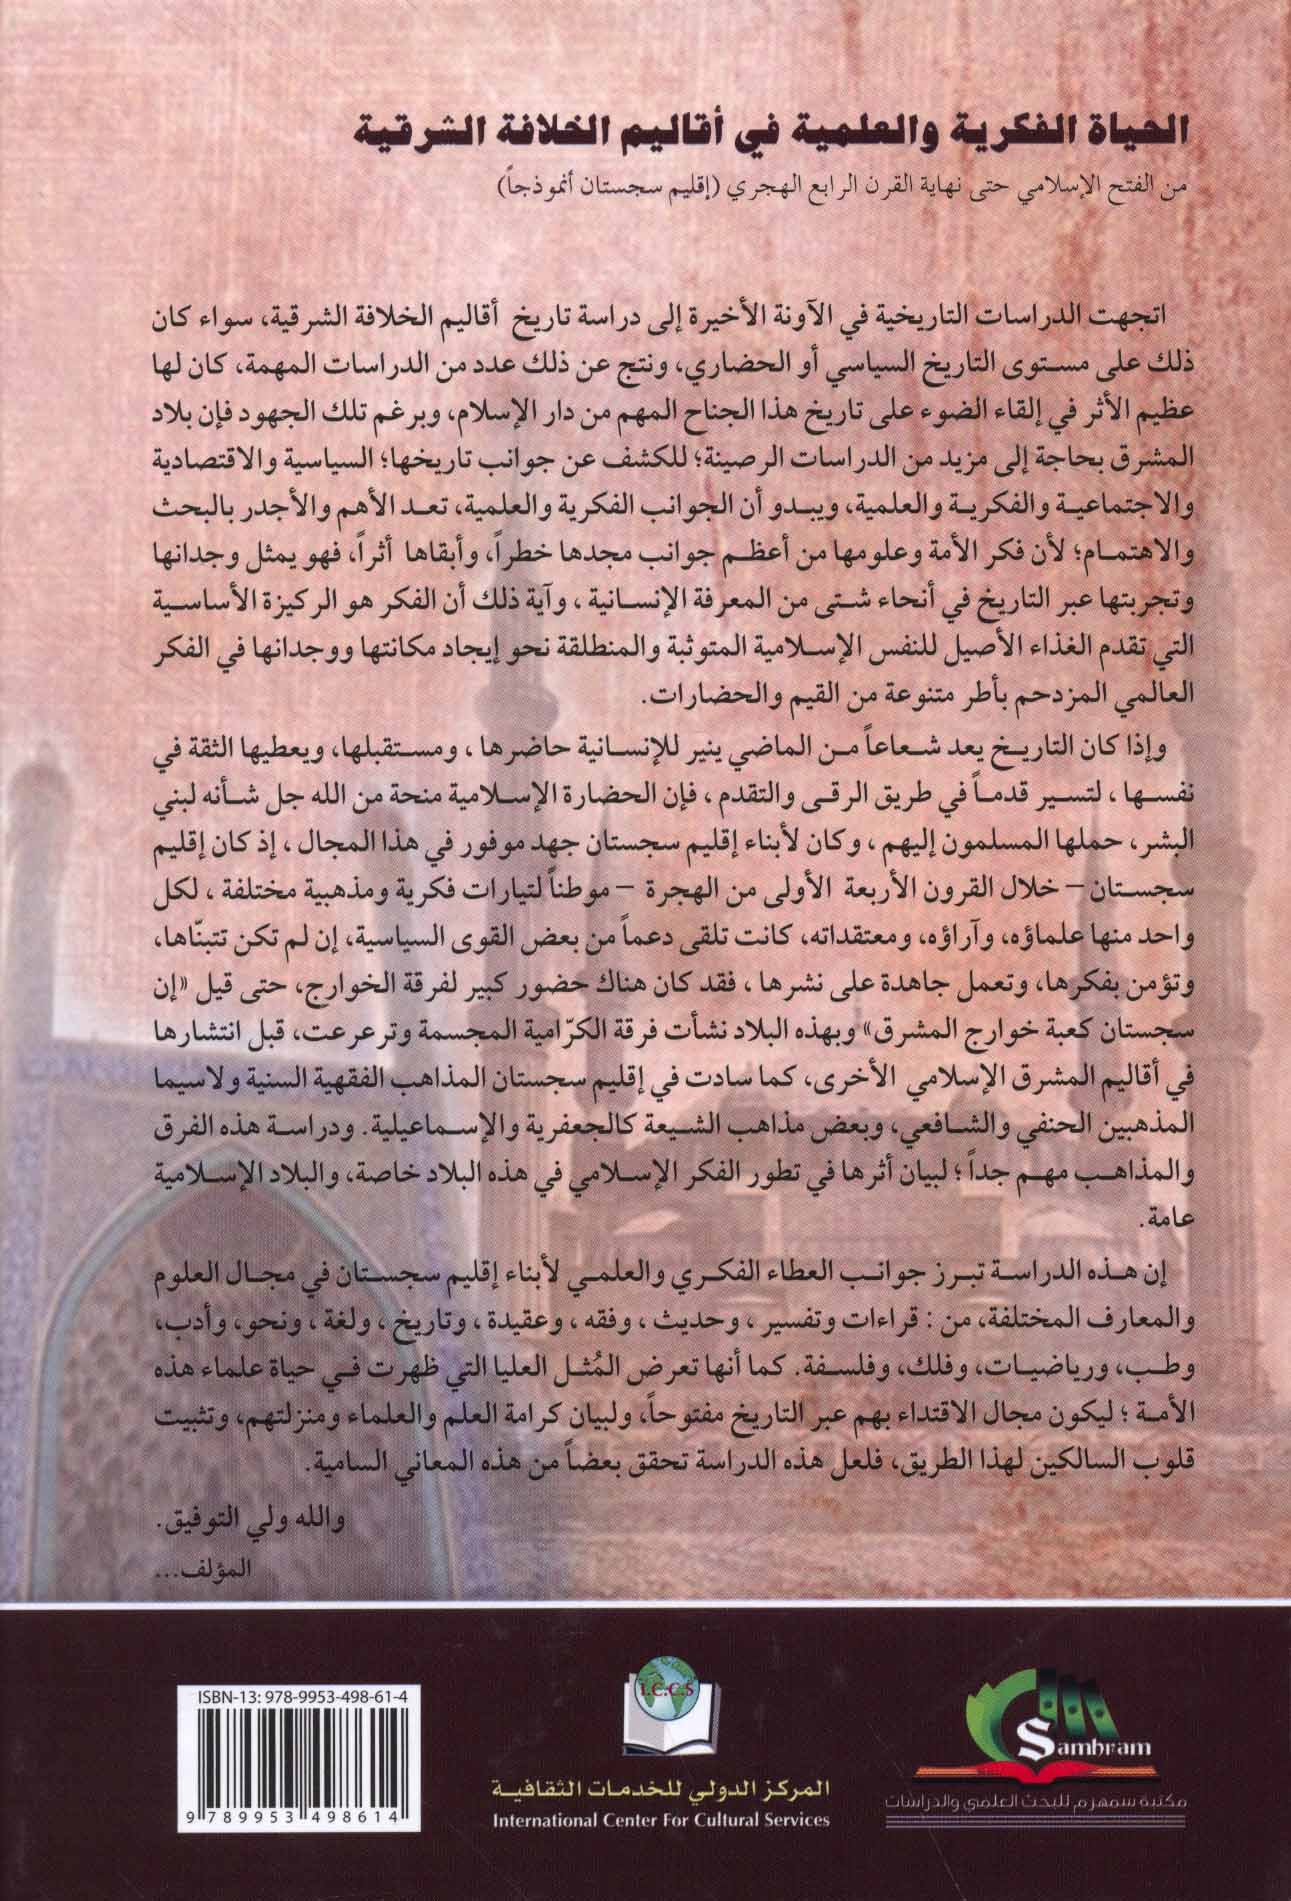 الحياة الفكرية والعلمية في أقاليم الخلافة الشرقية
من الفتح الإسلامي حتى نهاية القرن الرابع الهجري (إقليم سجستان أنموذجاً)
اتجهت الدراسات التاريخية في الآونة الأخيرة إلى دراسة تاريخ أقاليم الخلافة الشرقية، سواء كان
ذلك على مستوى التاريخ السياسي أو الحضاري، ونتج عن ذلك عدد من الدراسات المهمة، كان لها
عظيم الأثر في إلقاء الضوء على تاريخ هذا الجناح المهم من دار الإسلام، وبرغم تلك الجهود فإن بلاد
المشرق بحاجة إلى مزيد من الدراسات الرصينة؛ للكشف عن جوانب تاريخها؛ السياسية والاقتصادية
والاجتماعية والفكرية والعلمية، ويبدو أن الجوانب الفكرية والعلمية، تعد الأهم والأجدر بالبحث
والاهتمام؛ لأن فكر الأمة وعلومها من أعظم جوانب مجدها خطراً، وأبقاها أثراً، فهو يمثل وجدانها
وتجربتها عبر التاريخ في أنحاء شتى من المعرفة الإنسانية ، وآية ذلك أن الفكر هو الركيزة الأساسية
التي تقدم الغذاء الأصيل للنفس الإسلامية المتوثبة والمنطلقة نحو إيجاد مكانتها ووجدانها في الفكر
العالمي المزدحم بأطر متنوعة من القيم والحضارات.
وإذا كان التاريخ يعد شعاعاً من الماضي ينير للإنسانية حاضرها ، ومستقبلها، ويعطيها الثقة في
نفسها ، لتسير قدماً في طريق الرقى والتقدم ، فإن الحضارة الإسلامية منحة من الله جل شأنه لبني
البشر، حملها المسلمون إليهم ، وكان لأبناء إقليم سجستان جهد موفور في هذا المجال ، إذ كان إقليم
سجستان – خلال القرون الأربعة الأولى من الهجرة – موطناً لتيارات فكرية ومذهبية مختلفة ، لكل
واحد منها علماؤه، وآراؤه، ومعتقداته، كانت تلقى دعماً من بعض القوى السياسية، إن لم تكن تتبنّاها،
وتؤمن بفكرها، وتعمل جاهدة على نشرها ، فقد كان هناك حضور كبير لفرقة الخوارج، حتى قيل «إن
سجستان كعبة خوارج المشرق» وبهذه البلاد نشأت فرقة الكرّامية المجسمة وترعرعت، قبل انتشارها
في أقاليم المشرق الإسلامي الأخرى، كما سادت في إقليم سجستان المذاهب الفقهية السنية ولاسيما
المذهبين الحنفي والشافعي، وبعض مذاهب الشيعة كالجعفرية والإسماعيلية. ودراسة هذه الفرق
والمذاهب مهم جداً ؛ لبيان أثرها في تطور الفكر الإسلامي في هذه البلاد خاصة، والبلاد الإسلامية
عامة.
إن هذه الدراسة تبرز جوانب العطاء الفكري والعلمي لأبناء إقليم سجستان في مجال العلوم
والمعارف المختلفة، من : قراءات وتفسير ، وحديث ، وفقه ، وعقيدة ، وتاريخ ، ولغة ، ونحو، وأدب،
وطب، ورياضيات، وفلك، وفلسفة. كما أنها تعرض المُثل العليا التي ظهرت في حياة علماء هذه
الأمة ؛ ليكون مجال الاقتداء بهم عبر التاريخ مفتوحاً، ولبيان كرامة العلم والعلماء ومنزلتهم، وتثبيت
قلوب السالكين لهذا الطريق، فلعل هذه الدراسة تحقق بعضاً من هذه المعاني السامية.
والله ولي التوفيق.
المؤلف...
ISBN-13: 978-9953-498-61-4
9 789953 498614
I.C.C.S
المركز الدولي للخدمات الثقافية
International Center For Cultural Services
Sambram
مكتبة سمهرم للبحث العلمي والدراسات